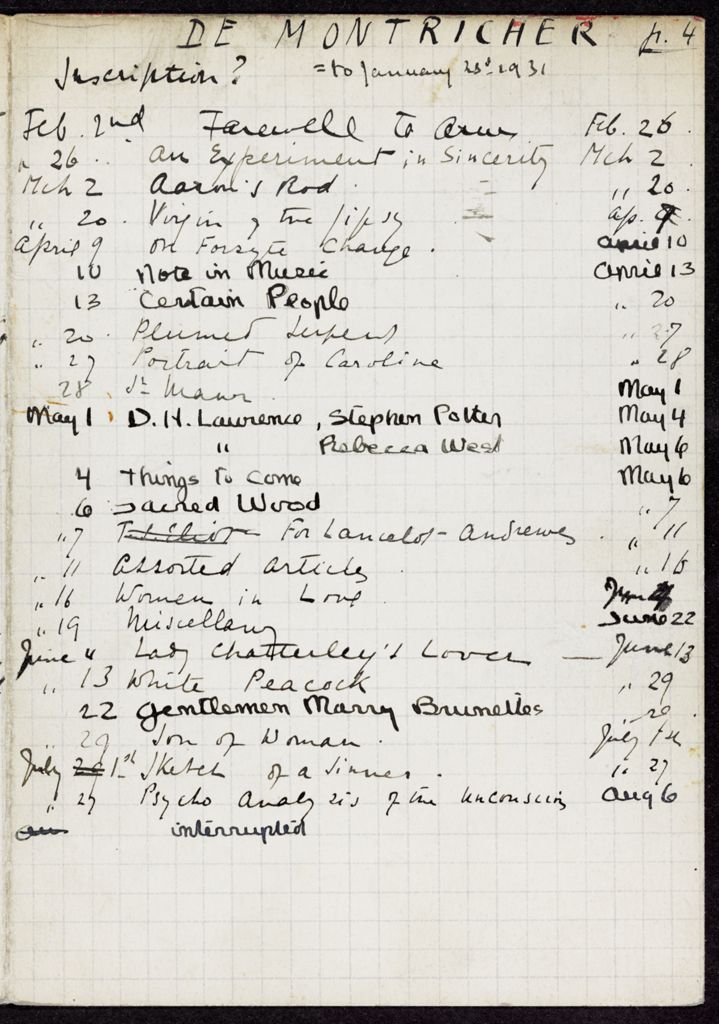 DE MONTRICHER p. 4
Inscription? = to January 28th 1931
Feb. 2nd Farewell to Arms Feb. 26.
" 26.. An Experiment in Sincerity Mch 2
Mch 2 Aaron's Rod. " 20.
" 20. Virgin & the Gipsy Ap. 9
April 9 On Forsyte Change. April 10
10 Note in Music April 13
13 Certain People " 20
" 20. Plumed Serpent " 27
" 27 Portrait of Caroline " 28
28 St Mawr. May 1
May 1. D. H. Lawrence, Stephen Potter May 4
" Rebecca West May 6
4 Things to Come May 6
6 Sacred Wood " 7
" 7 T S Eliot For Lancelot Andrewes. " 11
" 11 Assorted Articles. " 16
" 16 Women in Love. June 4
" 19 Miscellany June 22
June 4 Lady Chatterley's Lover — June 13
" 13 White Peacock " 29
22 Gentlemen Marry Brunettes " 29
" 29 Son of Woman. July 1st
July 1st Sketch of a Sinner. " 27
" 27 Psycho Analysis of the Unconscious Aug 6
interrupted